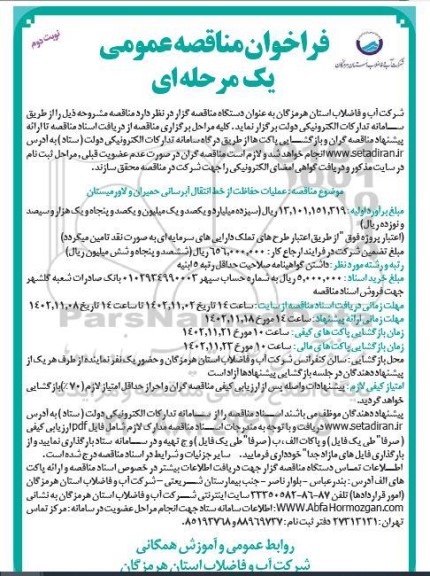 نوبت دوم
فراخوان مناقصه عمومی
یک مرحله‌ای
شرکت آب و فاضلاب استان هرمزگان
شرکت آب و فاضلاب استان هرمزگان به عنوان دستگاه مناقصه گزار در نظر دارد مناقصه مشروحه ذیل را از طریق
سامانه تدارکات الکترونیکی دولت برگزار نماید. کلیه مراحل برگزاری مناقصه از دریافت اسناد مناقصه تا ارائه
پیشنهاد مناقصه گران و بازگشایی پاکت ها از طریق درگاه سامانه تدارکات الکترونیکی دولت (ستاد) به آدرس
www.setadiran.ir انجام خواهد شد و لازم است مناقصه گران در صورت عدم عضویت قبلی، مراحل ثبت نام
در سایت مذکور و دریافت گواهی امضای الکترونیکی را جهت شرکت در مناقصه محقق سازند.
موضوع مناقصه: عملیات حفاظت از خط انتقال آبرسانی حمیران و لاورمیستان
مبلغ برآورد اولیه: ۱۳,۱۰۱,۱۵۱,۳۱۹ ریال (سیزده میلیارد و یکصد و یک میلیون و یکصد و پنجاه و یک هزار و سیصد
و نوزده ریال)
(اعتبار پروژه فوق "از طریق اعتبار طرح های تملک دارایی های سرمایه ای به صورت نقد تامین میگردد)
مبلغ تضمین شرکت در فرایند ارجاع کار: ۶۵۶,۰۰۰,۰۰۰ ریال (ششصد و پنجاه و شش میلیون ریال)
رتبه و رشته مورد نظر: داشتن گواهینامه صلاحیت حداقل رتبه ۵ ابنیه
مبلغ خرید اسناد: ۵,۰۰۰,۰۰۰ ریال به شماره حساب سپهر ۰۱۰۲۹۳۴۹۹۰۰۰۳ بانک صادرات شعبه گلشهر
جهت فروش اسناد مناقصه
مهلت زمانی دریافت اسناد مناقصه از سایت: ساعت ۱۴ تاریخ ۱۴۰۲,۱۱,۰۲ تا ساعت ۱۴ تاریخ ۱۴۰۲,۱۱,۰۸
مهلت زمانی ارائه پیشنهاد: ساعت ۱۴ مورخ ۱۴۰۲,۱۱,۱۸
زمان بازگشایی پاکت های کیفی: ساعت ۱۰ مورخ ۱۴۰۲,۱۱,۲۱
زمان بازگشایی پاکت های مالی: ساعت ۱۰ مورخ ۱۴۰۲,۱۱,۲۳
محل بازگشایی: سالن کنفرانس شرکت آب و فاضلاب استان هرمزگان و حضور یک نفر نماینده از طرف هر یک از
پیشنهاد دهندگان در جلسه بازگشایی پیشنهادها آزاد است
امتیاز کیفی لازم: پیشنهادات واصله پس از ارزیابی کیفی مناقصه گران و احراز حداقل امتیاز لازم (۷۰٪) بازگشایی
خواهد گردید.
پیشنهاد دهندگان موظف می باشند اسناد مناقصه را از سامانه تدارکات الکترونیکی دولت (ستاد) به آدرس
www.setadiran.ir دریافت و با توجه به مندرجات اسناد مناقصه مدارک لازم شامل فایل pdf ارزیابی کیفی
(صرفا" طی یک فایل) و پاکات الف، ب (صرفا" طی یک فایل) و ج تهیه و در سامانه ستاد بارگذاری نمایید و از
بارگذاری فایل های مازاد جدا" خودداری فرمایید. سایر جزئیات و شرایط در اسناد مناقصه درج شده است.
اطلاعات تماس دستگاه مناقصه گزار جهت دریافت اطلاعات بیشتر در خصوص اسناد مناقصه و ارائه پاکت
های الف آدرس: بندرعباس - بلوار ناصر - جنب بیمارستان شریعتی - شرکت آب و فاضلاب استان هرمزگان
(امور قراردادها) تلفن ۸۷-۸۶-۳۳۳۵۰۵۸۲ سایت اینترنتی شرکت آب و فاضلاب استان هرمزگان به نشانی
www.AbfaHormozgan.com: اطلاعات سامانه ستاد جهت انجام مراحل عضویت در سامانه: مرکز تماس
تهران: ۲۷۳۱۳۱۳۱ دفتر ثبت نام: ۸۸۹۶۹۷۳۷ و ۸۵۱۹۳۷۶۸.
روابط عمومی و آموزش همگانی
شرکت آب و فاضلاب استان هرمزگان